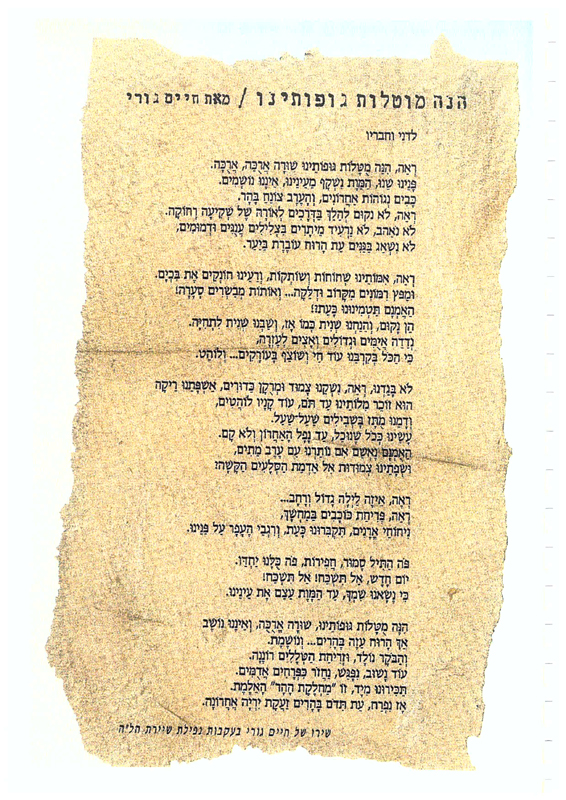 הנה מוטלות גופותינו / מאת חיים גורי
לדני וחבריו
רְאֵה, הִנֵּה מֻטָּלוֹת גּוּפוֹתֵינוּ שׁוּרָה אֲרֻכָּה, אֲרֻכָּה.
פָּנֵינוּ שֻׁנּוּ, הַמָּוֶת נִשְׁקָף מֵעֵינֵינוּ, אֵינֶנּוּ נוֹשְׁמִים.
כָּבִים נְגוֹהוֹת אַחֲרוֹנִים, וְהָעֶרֶב צוֹנֵחַ בָּהָר.
רְאֵה, לֹא נָקוּם לְהַלֵּךְ בַּדְּרָכִים לְאוֹרָהּ שֶׁל שְׁקִיעָה רְחוֹקָה.
לֹא נֹאהַב, לֹא נַרְעִיד מֵיתָרִים בִּצְלִילִים עֲנֻגִּים וּדְמוּמִים,
לֹא נִשְׁאַג בַּגַּנִּים עֵת הָרוּחַ עוֹבֶרֶת בַּיַּעַר.
רְאֵה, אִמּוֹתֵינוּ שְׁחוֹחוֹת וְשׁוֹתְקוֹת, וְרֵעֵינוּ חוֹנְקִים אֶת בִּכְיָם.
וּמַפַּץ רִמּוֹנִים מִקָּרוֹב וּדְלֵקָה... וְאוֹתוֹת מְבַשְּׂרִים סְעָרָה!
הַאֻמְנָם תַּטְמִינוּנוּ כָּעֵת?!
הֵן נָקוּם, וְהֵגַחְנוּ שֵׁנִית כְּמוֹ אָז, וְשַׁבְנוּ שֵׁנִית לִתְחִיָּה.
נְדַדֶּה אֲיֻמִּים וּגְדוֹלִים וְאָצִים לְעֶזְרָה,
כִּי הַכֹּל בְּקִרְבֵּנוּ עוֹד חַי וְשׁוֹצֵף בָּעוֹרְקִים... וְלוֹהֵט.
לֹא בָּגַדְנוּ, רְאֵה, נִשְׁקֵנוּ צָמוּד וּמְרֻקָּן כַּדּוּרִים, אַשְׁפָּתֵנוּ רֵיקָה
הוּא זוֹכֵר מִלּוֹתֵינוּ עַד תֹּם, עוֹד קָנָיו לוֹהֲטִים,
וְדָמֵנוּ מֻתָּז בַּשְּׁבִילִים שַׁעַל־שַׁעַל.
עָשִׂינוּ כְּכֹל שֶׁנּוּכַל, עַד נָפַל הָאַחֲרוֹן וְלֹא קָם.
הַאֻמְנָם נֶאְשַׁם אִם נוֹתַרְנוּ עִם עֶרֶב מֵתִים,
וּשְׂפָתֵינוּ צְמוּדוֹת אֶל אַדְמַת הַסְּלָעִים הַקָּשָׁה?
רְאֵה, אֵיזֶה לַיְלָה גָּדוֹל וְרָחָב...
רְאֵה, פְּרִיחַת כּוֹכָבִים בַּמַּחְשָׁךְ,
נִיחוֹחֵי אֳרָנִים, תִּקְבְּרוּנוּ כָּעֵת, וְרִגְבֵי הֶעָפָר עַל פָּנֵינוּ.
פֹּה הַתַּיִל סָמוּר, חֲפִירוֹת, פֹּה כֻּלָּנוּ יַחְדָּו.
יוֹם חָדָשׁ, אַל תִּשְׁכַּח! אַל תִּשְׁכַּח!
כִּי נָשָׂאנוּ שִׁמְךָ, עַד הַמָּוֶת עָצַם אֶת עֵינֵינוּ.
הִנֵּה מֻטָּלוֹת גּוּפוֹתֵינוּ, שׁוּרָה אֲרֻכָּה, וְאֵינֶנּוּ נוֹשְׁמִים
אַךְ הָרוּחַ עַזָּה בֶּהָרִים... וְנוֹשֶׁמֶת.
וְהַבֹּקֶר נוֹלָד, וּזְרִיחַת הַטְּלָלִים רוֹנְנָה.
עוֹד נָשׁוּב, נִפָּגֵשׁ, נַחֲזֹר כִּפְרָחִים אֲדֻמִּים.
תַּכִּירוּנוּ מִיָּד, זוֹ "מַחְלֶקֶת הָהָר" הָאִלֶּמֶת.
אָז נִפְרַח, עֵת תִּדֹּם בֶּהָרִים זַעֲקַת יְרִיָּה אַחֲרוֹנָה.
שירו של חיים גורי בעקבות נפילת שיירת הל"ה